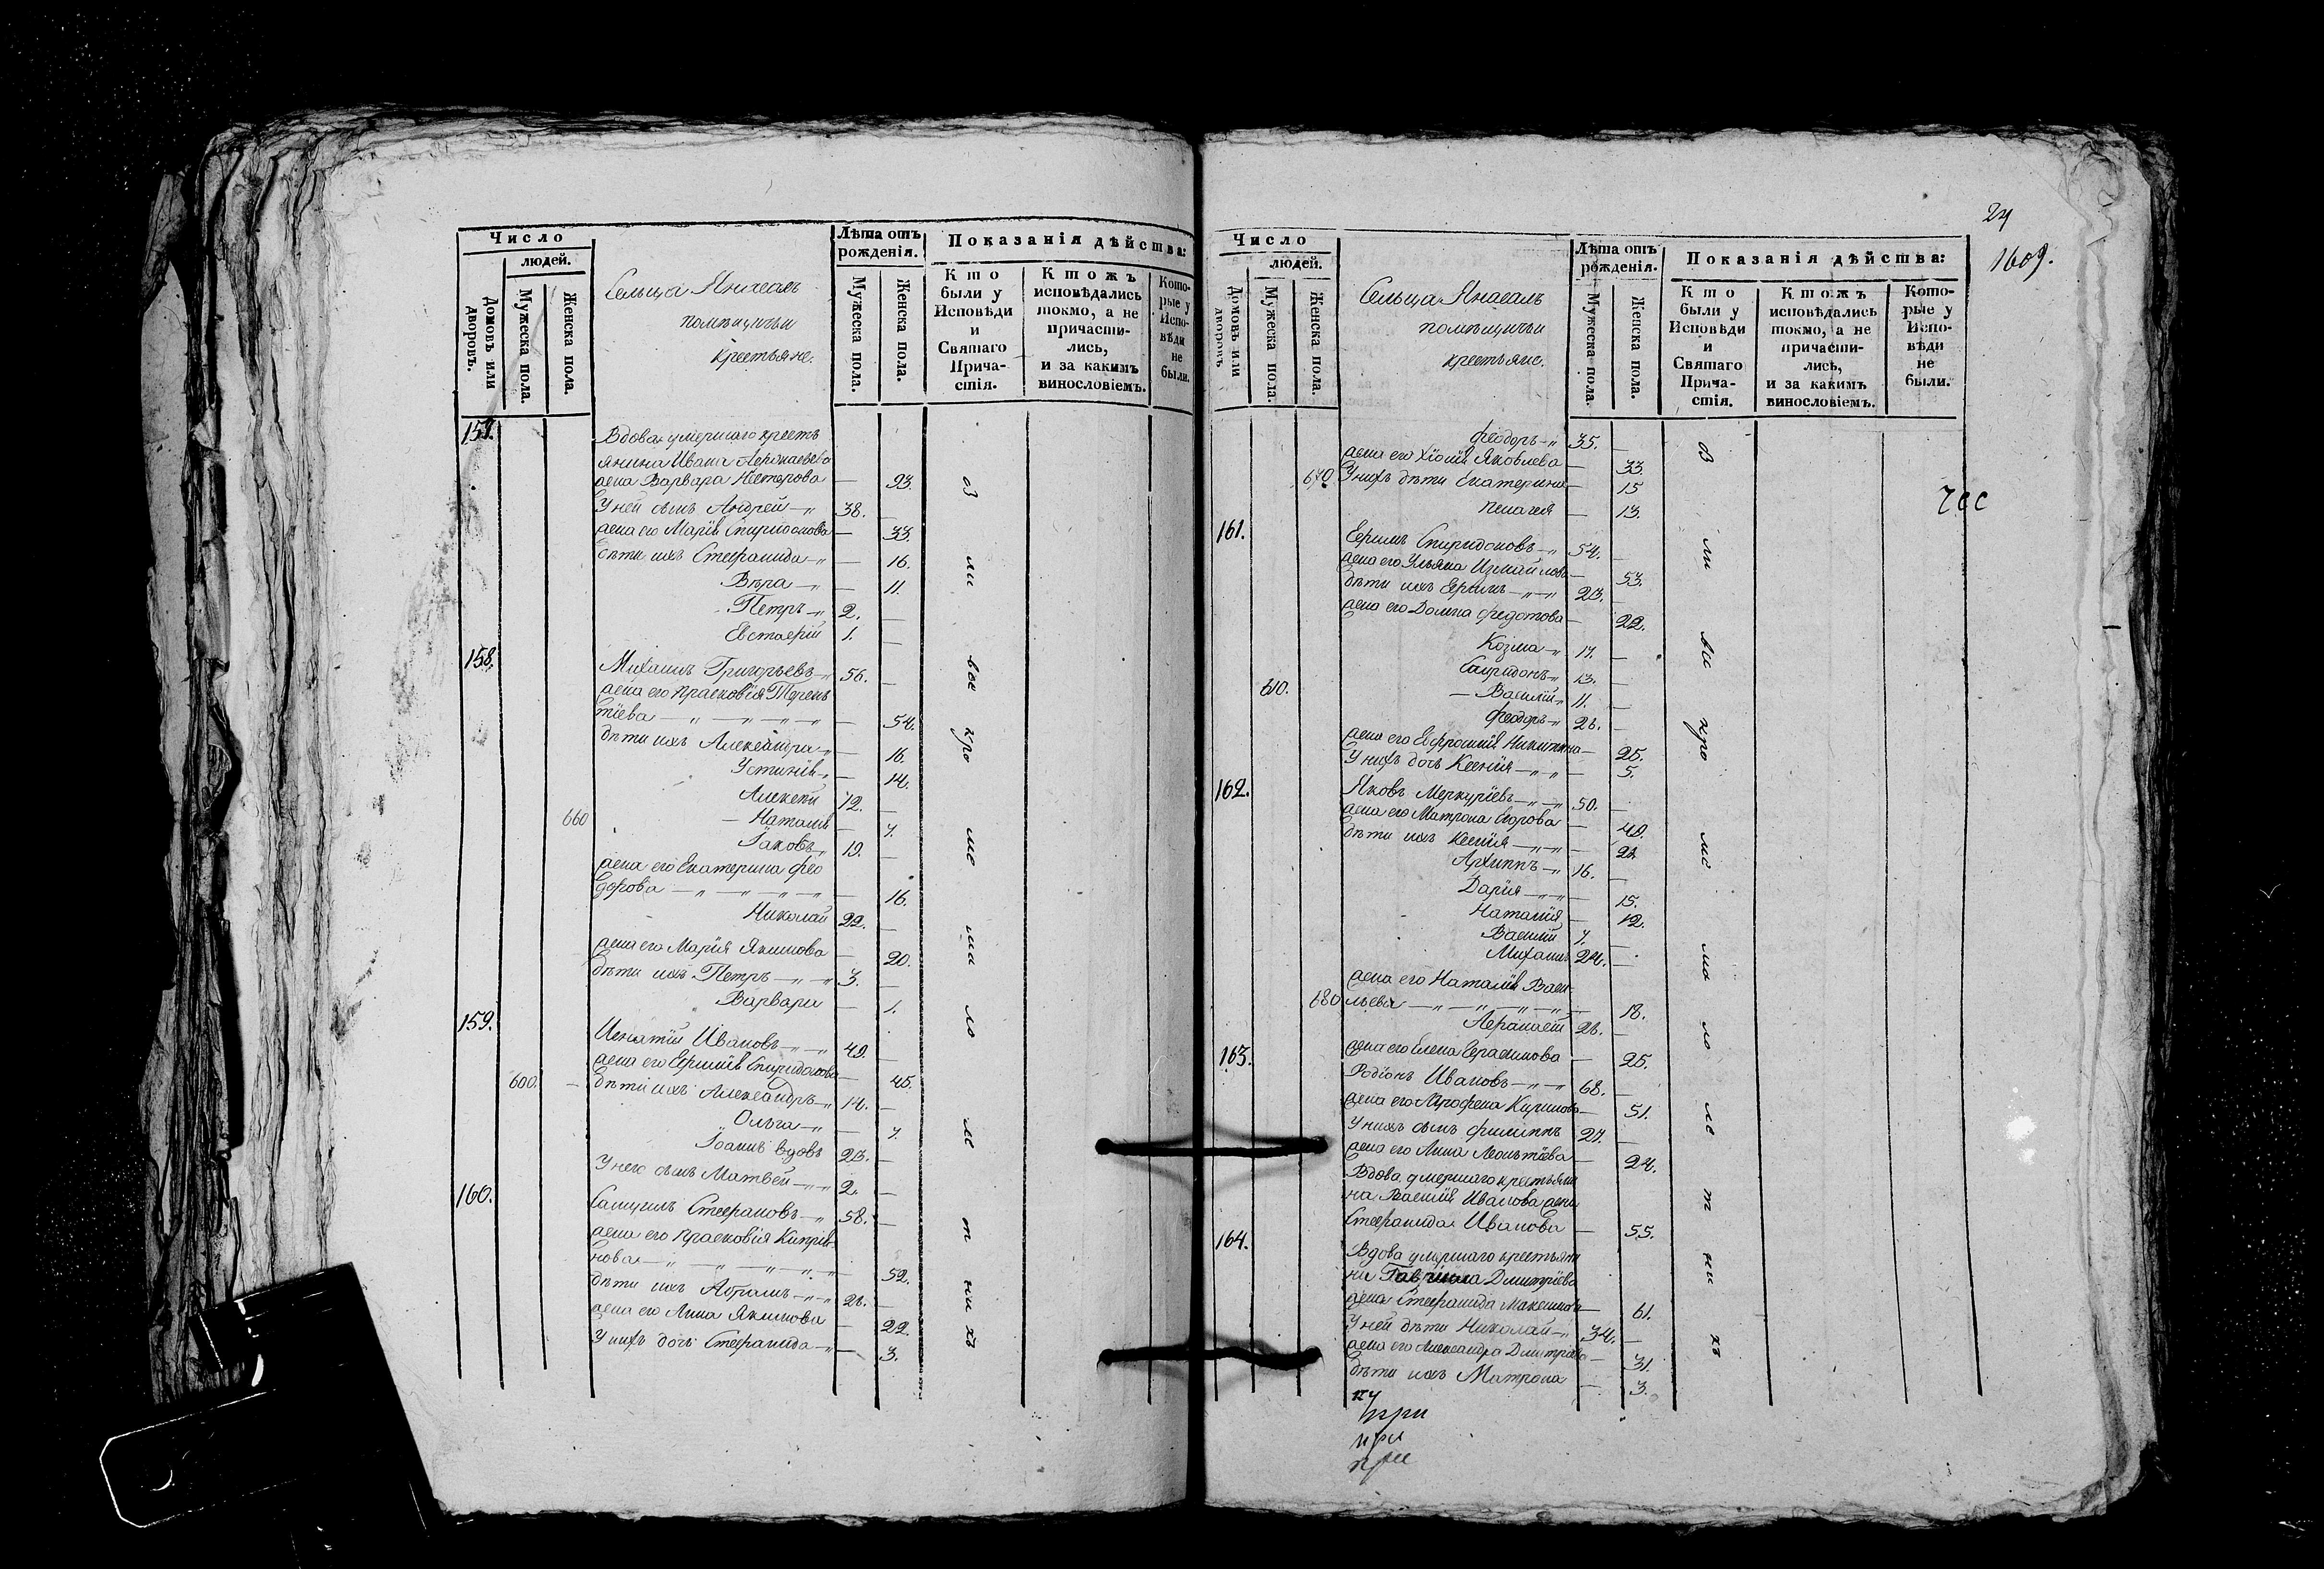 Число
людей.
Домовъ или дворовъ.
Мужеска пола.
Женска пола.
Сельца
помѣщичьи
крестьяне.
Лѣта отъ рожденія.
Мужеска пола.
Женска пола.
Показанія дѣйства:
Кто были у Исповѣди и Святаго Причастія.
Ктожъ исповѣдались токмо, а не причастились, и за какимъ винословіемъ.
Которые у Исповѣди не были.
157.
Вдова умершаго кресть
янина Ивана
жена Варвара Нестерова — 93.
У ней сынъ Андрей 38. —
жена его Марія Спиридонова — 33
дѣти ихъ Стефанида — 16.
Вѣра — 11.
Петръ 2. —
Евстафій 1. —
158.
Михаилъ Григорьевъ 56. —
жена его Прасковія Терень
тіева — 54.
дѣти ихъ Александра — 16.
Устинія — 14.
Алексѣй 12. —
660 Наталія — 7.
Іаковъ 19. —
жена его Екатерина Фео
дорова — 16.
Николай 22. —
жена его Марія Якимова — 20.
дѣти ихъ Петръ 3. —
Варвара — 1.
159.
Игнатій Ивановъ 49. —
жена его Евфимія Спиридонова — 45.
600. дѣти ихъ Александръ 14. —
Ольга — 7.
Іоаннъ вдовъ 23. —
У него сынъ Матвей 2. —
160.
Самуилъ Стефановъ 58. —
жена его Прасковія Кипріа
нова — 52.
дѣти ихъ Абрамъ 26. —
жена его Анна Якимова — 22.
У нихъ дочь Стефанида — 3.
24
1609.
Число
людей.
Домовъ или дворовъ
Мужеска пола.
Женска пола.
Сельца
помѣщичьи
крестьяне.
Лѣта отъ рожденія.
Мужеска пола.
Женска пола.
Показанія дѣйства:
Кто были у Исповѣди и Святаго Причастія.
Ктожъ исповѣдались токмо, а не причастились, и за какимъ винословіемъ.
Которые у Исповѣди не были.
Феодоръ 35. —
жена его Яковлева — 33.
670 У нихъ дѣти Екатерина — 15
Пелагея — 13.
161.
Ефимъ Спиридоновъ 54. —
жена его Ульяна Измайлова — 53.
дѣти ихъ Ефимъ 23. —
жена его Домна Федотова — 22.
Козма 17. —
Спиридонъ 13. —
610. Василій 11. —
Феодоръ 26. —
жена его Евфросинія Никитина — 25.
У нихъ дочь Ксенія — 5.
162.
Яковъ Меркуріевъ 50. —
жена его Матрона Егорова — 49.
дѣти ихъ Ксенія — 22
Архиппъ 16. —
Дарія — 15.
Наталія — 12.
Василій 7. —
Михаилъ 24. —
жена его Наталія Васи
680 льева — 18.
Афанасій 26. —
жена его Елена Герасимова — 25.
163.
Родіонъ Ивановъ 68. —
жена его — 51.
У нихъ сынъ Филиппъ 27. —
жена его Анна Леонтіева — 24.
Вдова умершаго крестьяни
на Василія Иванова жена
Стефанида Иванова — 55.
164.
Вдова умершаго крестьяни
на Гавріила Дмитріева
жена Стефанида Максимова — 61.
У ней дѣти Николай 34. —
жена его Александра Дмитріева — 31.
дѣти ихъ Матрона — 3.
при
при